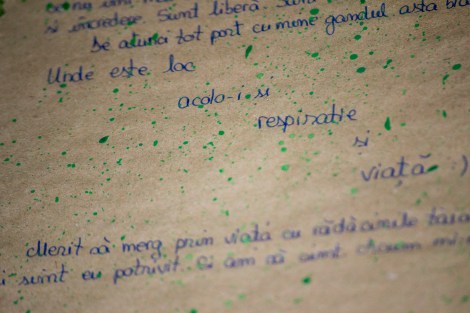 și încredere. Sunt liberă.
De atunci tot port cu mine gândul asta
Unde este loc
acolo-i și
respirație
și
viață :)
Merit să merg prin viață cu rădăcinile
sunt eu potrivit. Și am să sunt